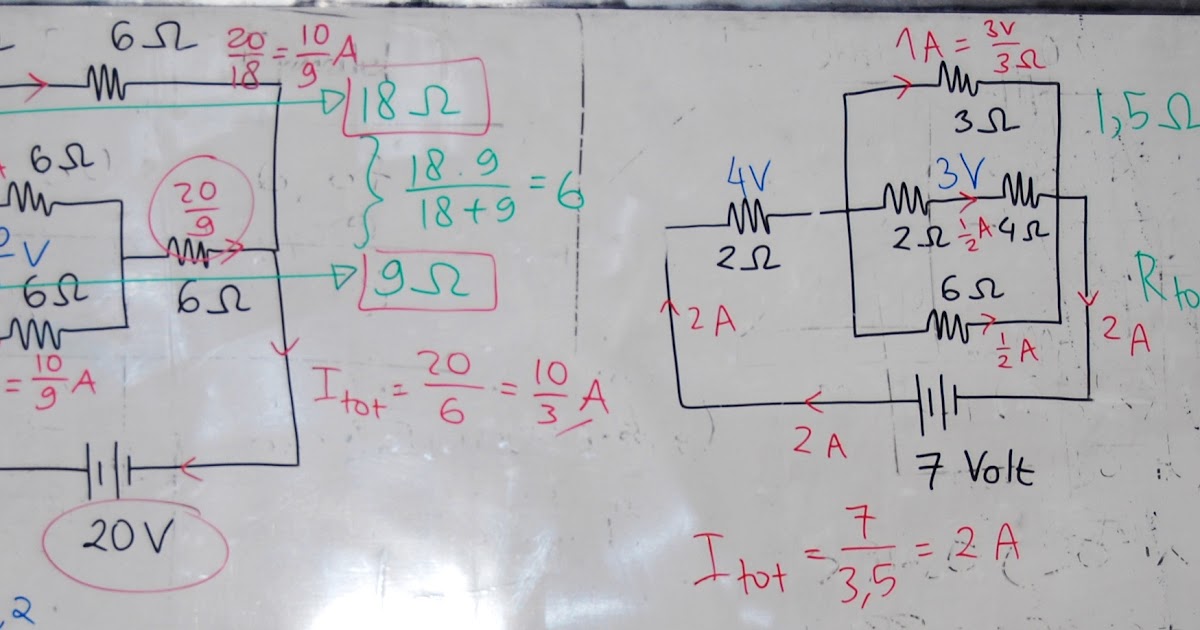 6Ω
20/18 = 10/9 A
18Ω
6Ω
20/9
18.9/18+9 = 6
2V
6Ω
6Ω
9Ω
= 10/9 A
I tot = 20/6 = 10/3 A
20V
,2
1A = 3V/3Ω
3Ω
1,5Ω
4V
3V
2Ω
2Ω 1/2 A 4Ω
6Ω
R to
2A
1/2 A
2A
2A
7 Volt
I tot = 7/3,5 = 2A